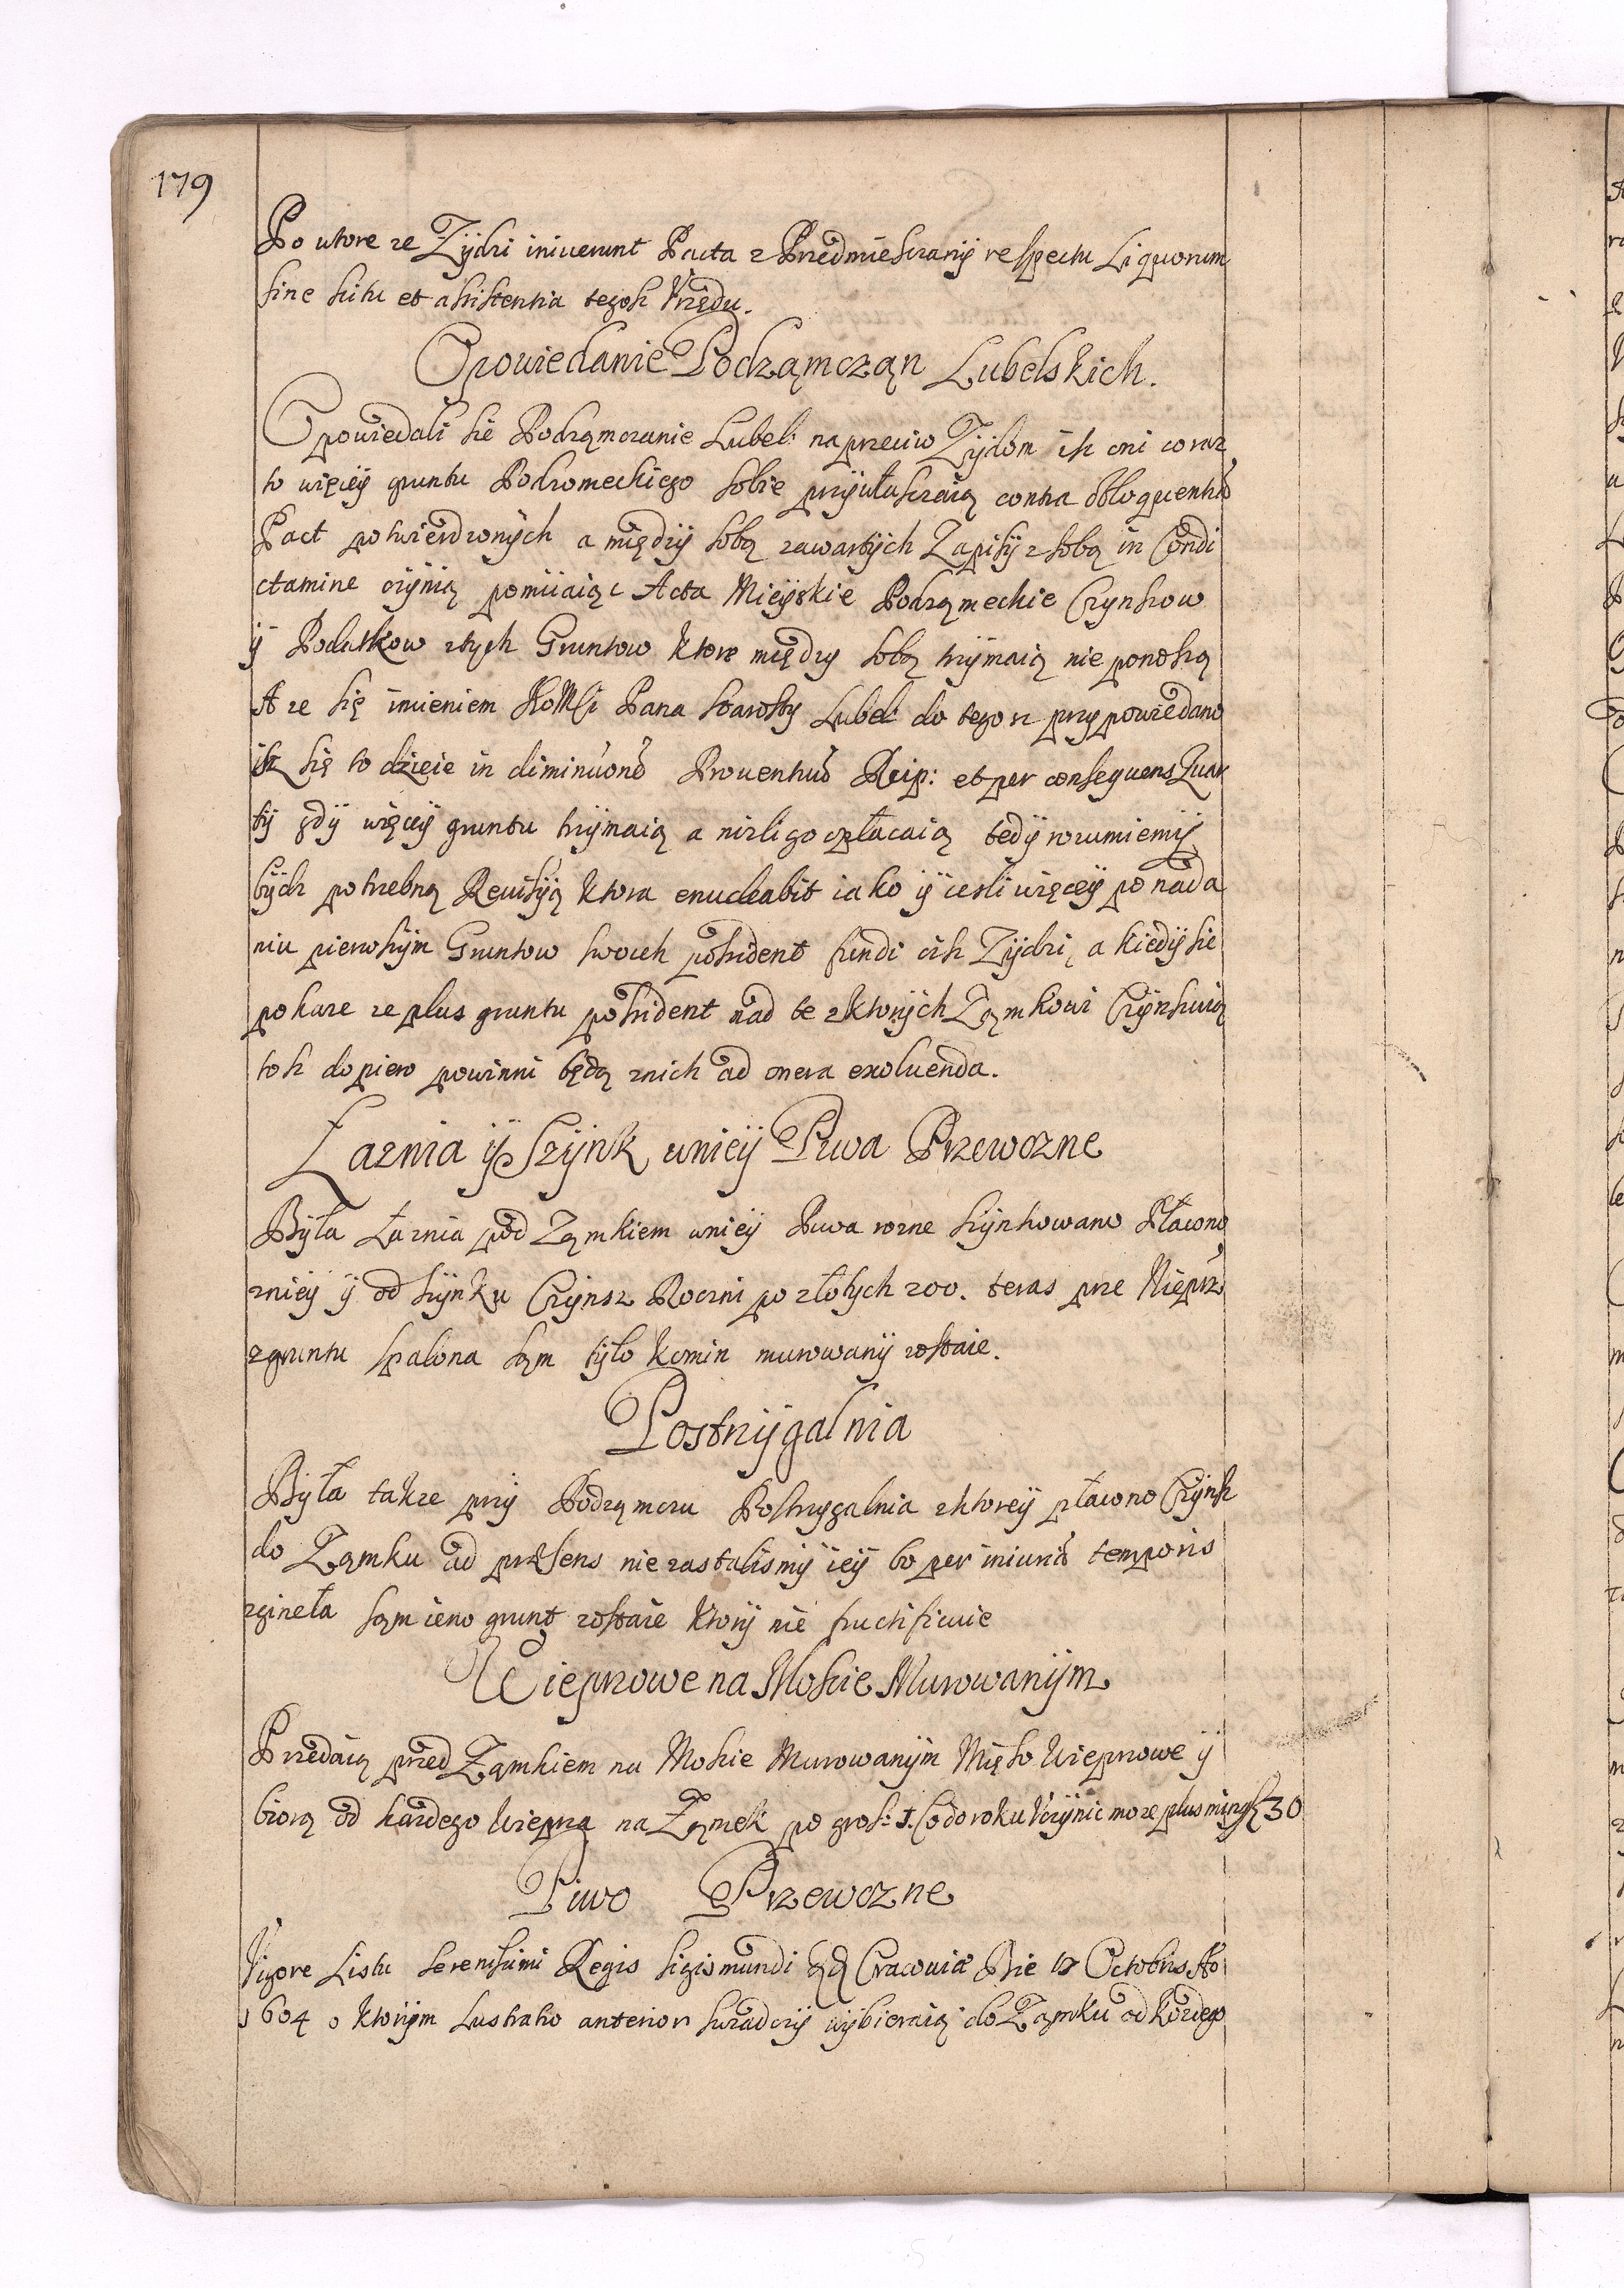 179
Po wtore ze Żydzi iniuerunt Pacta z Przedmiesczany respectu Liquorum
sine scitu et assistentia tegosz Vrzędu.
Opowiedanie Podzamczan Lubelskich.
Opowiedali sie Podzamczanie Lubel: naprzeciw Żydom isz oni coraz
to więcey gruntu Podzameckiego sobie przywłasczaią contra obloquentia
Pact potwierdzonych a między sobą zawartych Zapisy z sobą in Condi
ctamine czynią pomiiaiąc Acta Mieyskie Podzameckie Czynszow
y Podatkow ztych Gruntow ktore między sobą trzymaią nie ponoszą
A ze się imieniem Pana Starosty Lubel: do tego sz przypowiedano
isz się to dzieie in Prouentus Reip: et per consequens Quar
ty gdy więcey gruntu trzymaią a nizli go opłacaią tedy rozumiemy
bydz potrzebną Reuisyią ktora enucleabit iako y iesli więcey po nada
niu pierwszym Gruntow swoich possident fundi cisz Żydzi, a kiedy sie
pokaze ze plus gruntu possident nad te zktorych Zamkowi Czynszuią
tosz dopiero powinni będą znich ad onera exoluenda.
Łaznia y Szynk uniey Piwa Przewozne
Była Łaznia pod Zamkiem uniey Piwa rozne szynkowano Płacono
zniey y od szynku Czynsz Roczni po złotych 200. teras prze Nieprz
zgruntu spalona sam tylo komin murowany zostaie.
Postrzygalnia
Była takze przy Podzamczu Postrzygalnia zktorey płacono Czynsz
do Zamku ad præsens nie zastalismy iey bo per iniuria temporis
zgineła sam ieno grunt zostaie ktory nie fructificuie
Wieprzowe na Moscie Murowanym
Przedaią przed Zamkiem na Moscie Murowanym Mięso Wieprzowe y
biorą od kazdego wieprza na Zamek po grosz: 1. Co do roku Vczynic moze plus minus 30
Piwo Przewozne
Vigore Listu Serenissimi Regis Sigismundi Cracouiæ Die 17 Octobris Ao
1604 o ktorym Lustratio anterior swiadczy wybieraią do Zamku od kozdego